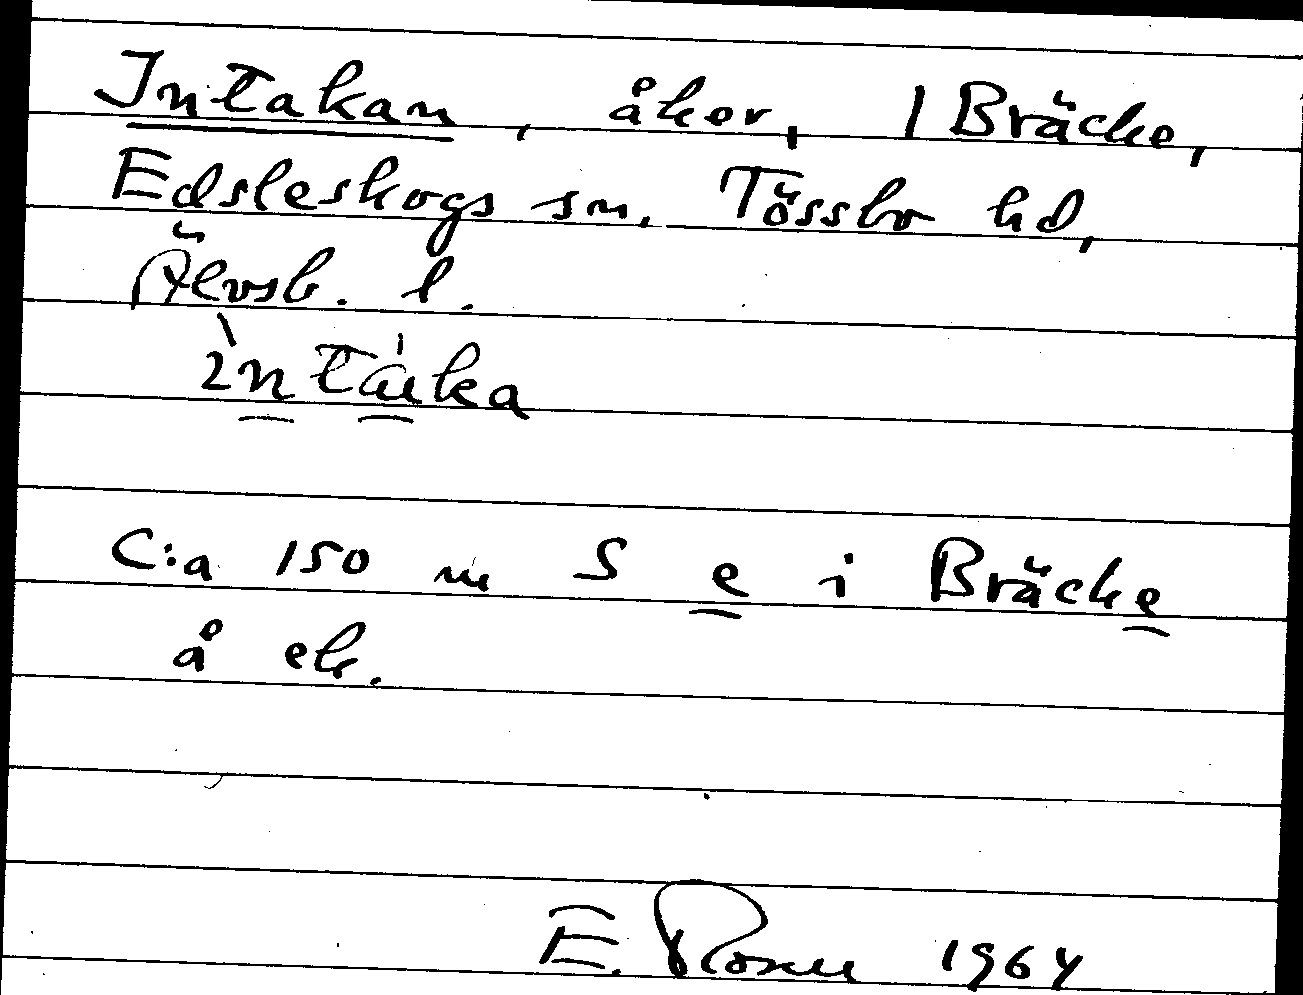 Intakan, åker, 1 Bräcke,
Edsleskogs sn. Tössbo hd,
Älvsb. l.
C:a 150 m S e i Bräcke
å ek.
E. 1964